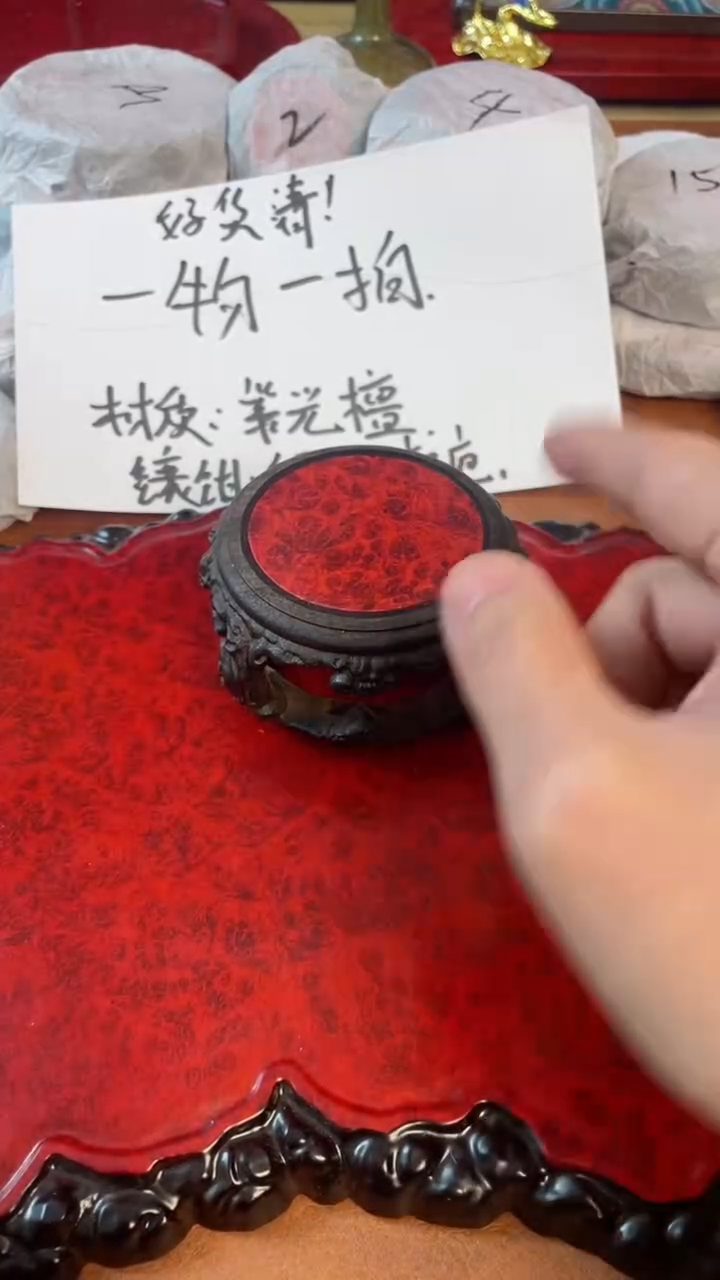 3
2
4
15
好货清!
一物一拍.
材质:
檀
镶钳